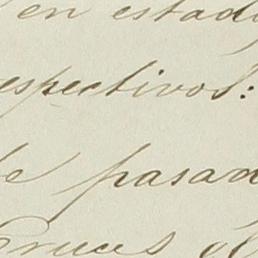 en estad
espectivos:
e pasad
ruces d